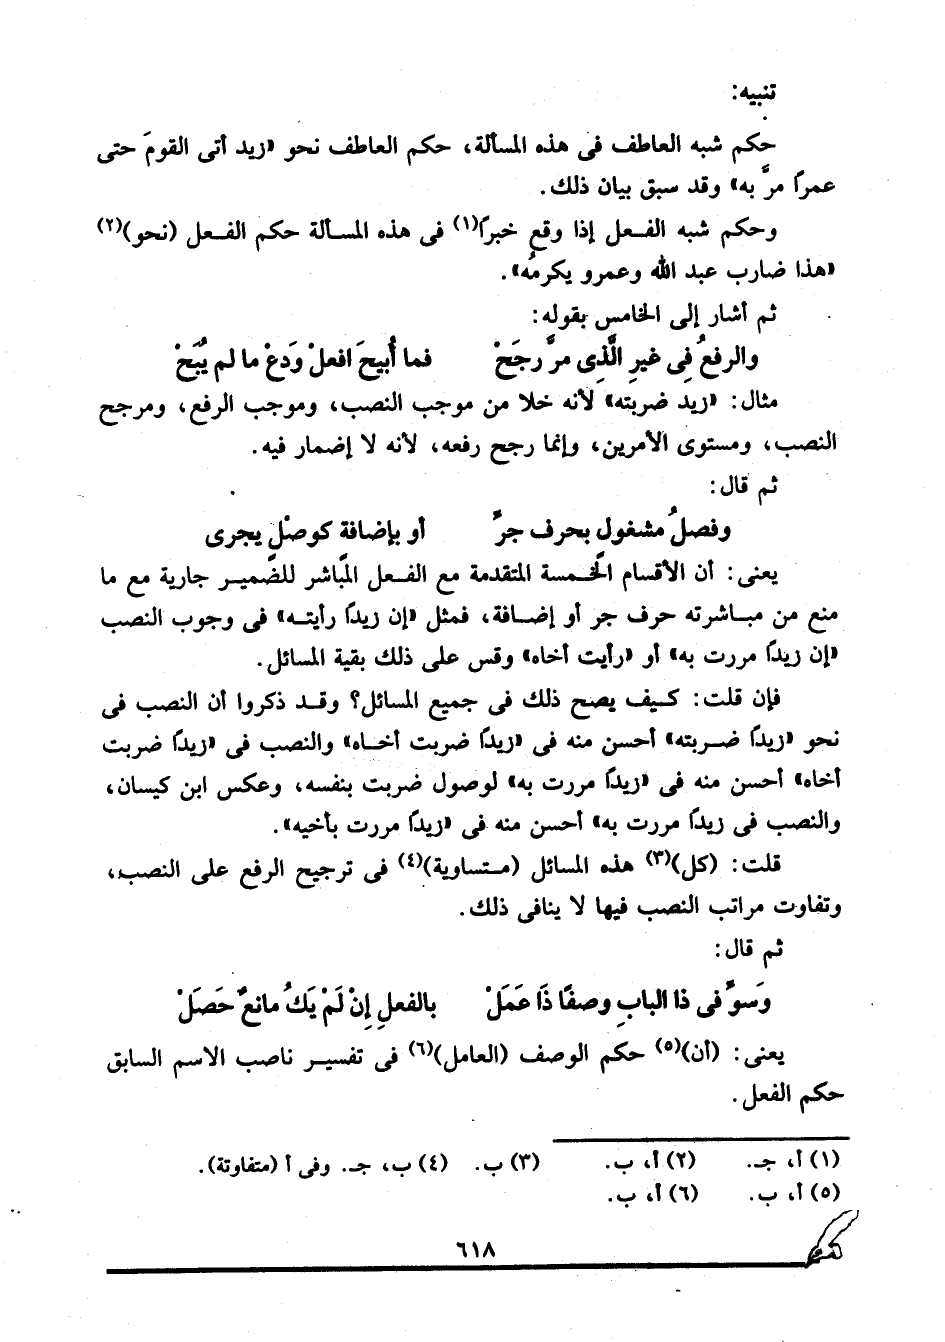 تنبيه:
حكم شبه العاطف فى هذه المسألة، حكم العاطف نحو «زيد أتى القومَ حتى
عمرًا مرَّ به» وقد سبق بيان ذلك.
وحكم شبه الفعل إذا وقع خبرًا(١) فى هذه المسألة حكم الفعل (نحو)(٢)
«هذا ضارب عبد الله وعمرو يكرمُه».
ثم أشار إلى الخامس بقوله:
والرفعُ فِى غيرِ الَّذِى مرَّ رجَحْ فما أُبيحَ افعلْ وَدَعْ ما لم يُبَحْ
مثال: «زيد ضربته» لأنه خلا من موجب النصب، وموجب الرفع، ومرجح
النصب، ومستوى الأمرين، وإنما رجح رفعه، لأنه لا إضمار فيه.
ثم قال:
وفصلُ مشغول بحرف جرَّ أو بإضافة كوصْلٍ يجرى
يعنى: أن الأقسام الخَّمسة المتقدمة مع الفعل المَّباشر للضَّمير جارية مع ما
منع من مباشرته حرف جر أو إضافة، فمثل «إن زيدًا رأيته» فى وجوب النصب
«إن زيدًا مررت به» أو «رأيت أخاه» وقس على ذلك بقية المسائل.
فإن قلت: كيف يصح ذلك فى جميع المسائل؟ وقد ذكروا أن النصب فى
نحو «زيدًا ضربته» أحسن منه فى «زيدًا ضربت أخاه» والنصب فى «زيدًا ضربت
أخاه» أحسن منه فى «زيدًا مررت به» لوصول ضربت بنفسه، وعكس ابن كيسان،
والنصب فى زيدًا مررت به» أحسن منه فى «زيدًا مررت بأخيه».
قلت: (كل)(٣) هذه المسائل (متساوية)(٤) فى ترجيح الرفع على النصب،
وتفاوت مراتب النصب فيها لا ينافى ذلك.
ثم قال:
وَسوِّ فى ذا البابِ وصفًا ذَا عَمَلْ بالفعلِ إِنْ لَمْ يَكُ مانعٌ حَصَلْ
يعنى: (أن)(٥) حكم الوصف (العامل)(٦) فى تفسير ناصب الاسم السابق
حكم الفعل.
(١) أ، جـ. (٢) أ، ب. (٣) ب. (٤) ب، جـ. وفى أ (متفاوتة).
(٥) أ، ب. (٦) أ، ب.
٦١٨